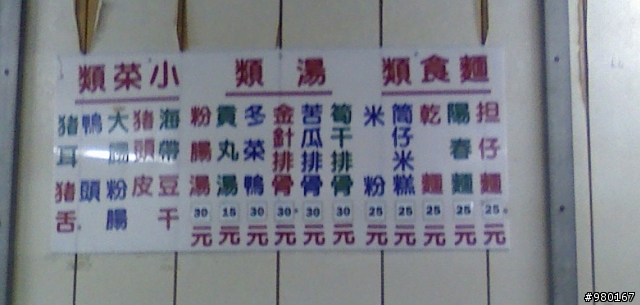 麵食類
担仔麵 25元
陽春麵 25元
乾麵 25元
筒仔米糕 25元
米粉 25元
湯類
筍干排骨 30元
苦瓜排骨 30元
金針排骨 30元
冬菜鴨 30元
貢丸湯 15元
粉腸湯 30元
小菜類
海帶 豆干
猪頭皮
大腸 粉腸
鴨頭
猪耳 猪舌
#980167